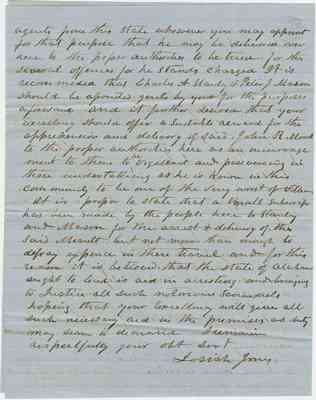 agents from this State whomever you may appoint
for that purpose that he may be delivered over
here to the proper authorities to be tried for the
several offences for he Stands Charged It is
recommended that Charles A Stanly & Peter J Mason
should be appointed agents by you for the purposes
aforesaid and it further desired that your
excellency should offer a Suitable reward for the
apprehension and delivery of Said John R
to the proper authorities here as an encourage
ment to them to vigilance and persevering in
there undertaking as he is known in this
community to be one of the very worst of
It is proper to state that a Small Subscrip
has been made by the people here to Stanly
and Mason for the arrest & delivery of the
Said but not more than enough to
defray expences in there travel and for this
reason it is believed that the State of Alabama
ought to lend is aid in arresting and bringing
to Justice all such notorious Scoundrels
hoping that your Excellency will give all
such necessary aid in the premises as duty
may seem to demand I remain
respectfully your obt Servt
Josiah Jones